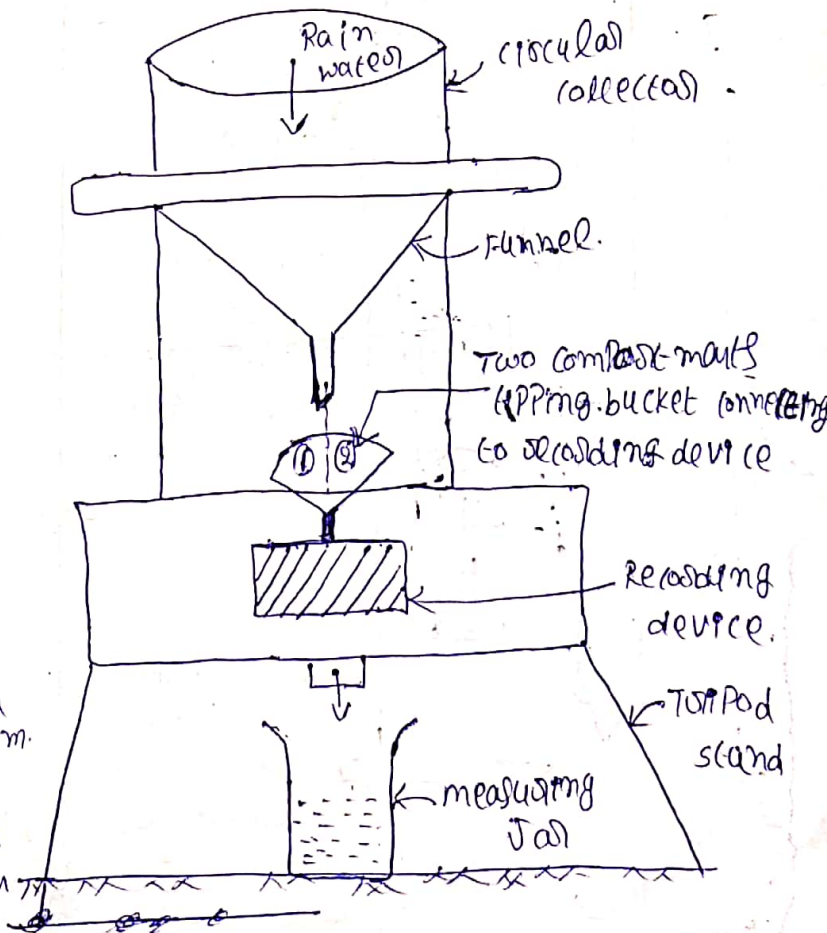 Rain
water
circular
collector.
Funnel.
Two compartments
tipping.bucket connecting
to recording device
① ②
Recording
device.
m.
Tripod
stand
measuring
Jar